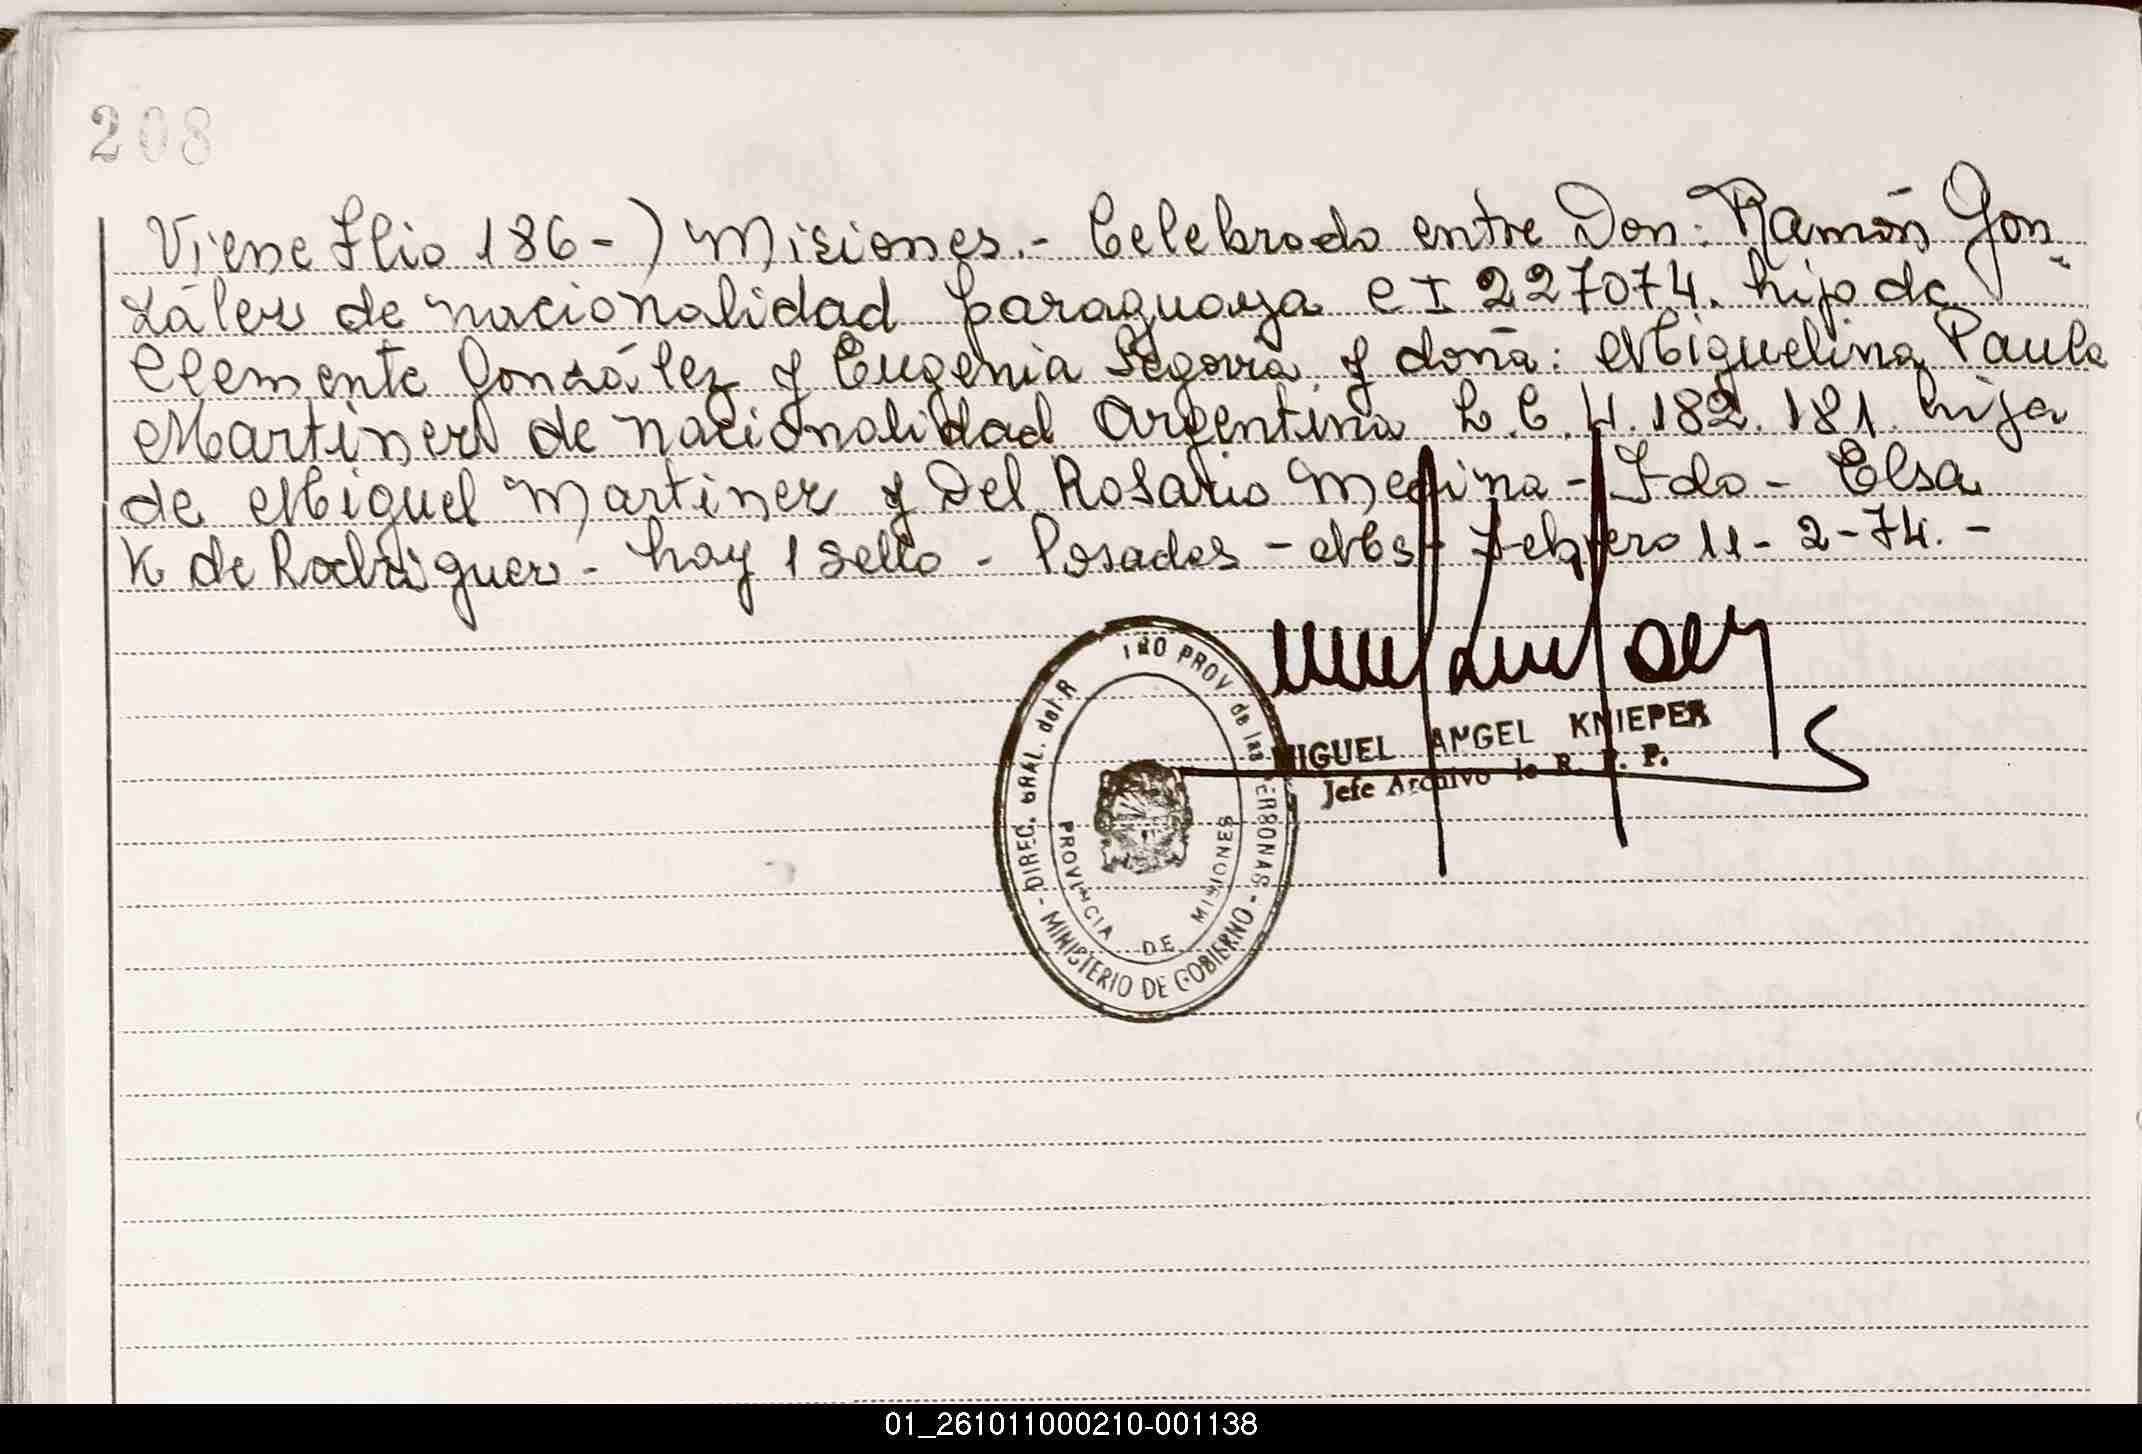 208
Viene Flio 186-) Misiones.- Celebrado entre Don: Ramón Gon
záles de nacionalidad paraguaya C I 227074. hijo de
Clemente González y Eugenia Segovia y doña: Miguelina Paula
Martinez de nacionalidad Argentina L.C. 4.182.181. hija
de Miguel Martinez y Del Rosario Medina - Fdo - Elsa
K de Rodriguez - hay 1 sello - Posadas - Ms - Febrero 11-2-74.-
MIGUEL ANGEL KNIEPER
Jefe Archivo R. P. P.
DIREC. GRAL. del R TRO PROV de las PERSONAS - MINISTERIO DE GOBIERNO -
PROVINCIA DE MISIONES
01_261011000210-001138